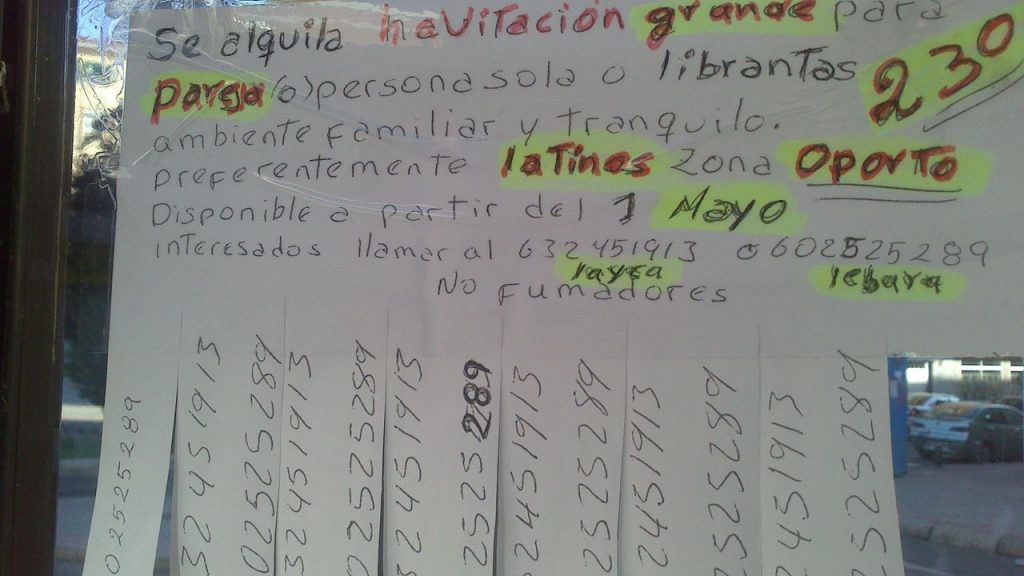 Se alquila havitación grande para
pareja (o) persona sola o librantas 230
ambiente familiar y tranquilo.
preferentemente latinos zona Oporto
Disponible a partir del 1 Mayo
interesados llamar al 632451913 o 602525289
layca lebara
No fumadores
02525289
32451913
02525289
32451913
02525289
32451913
2525289
2451913
2525289
2451913
2525289
2451913
2525289